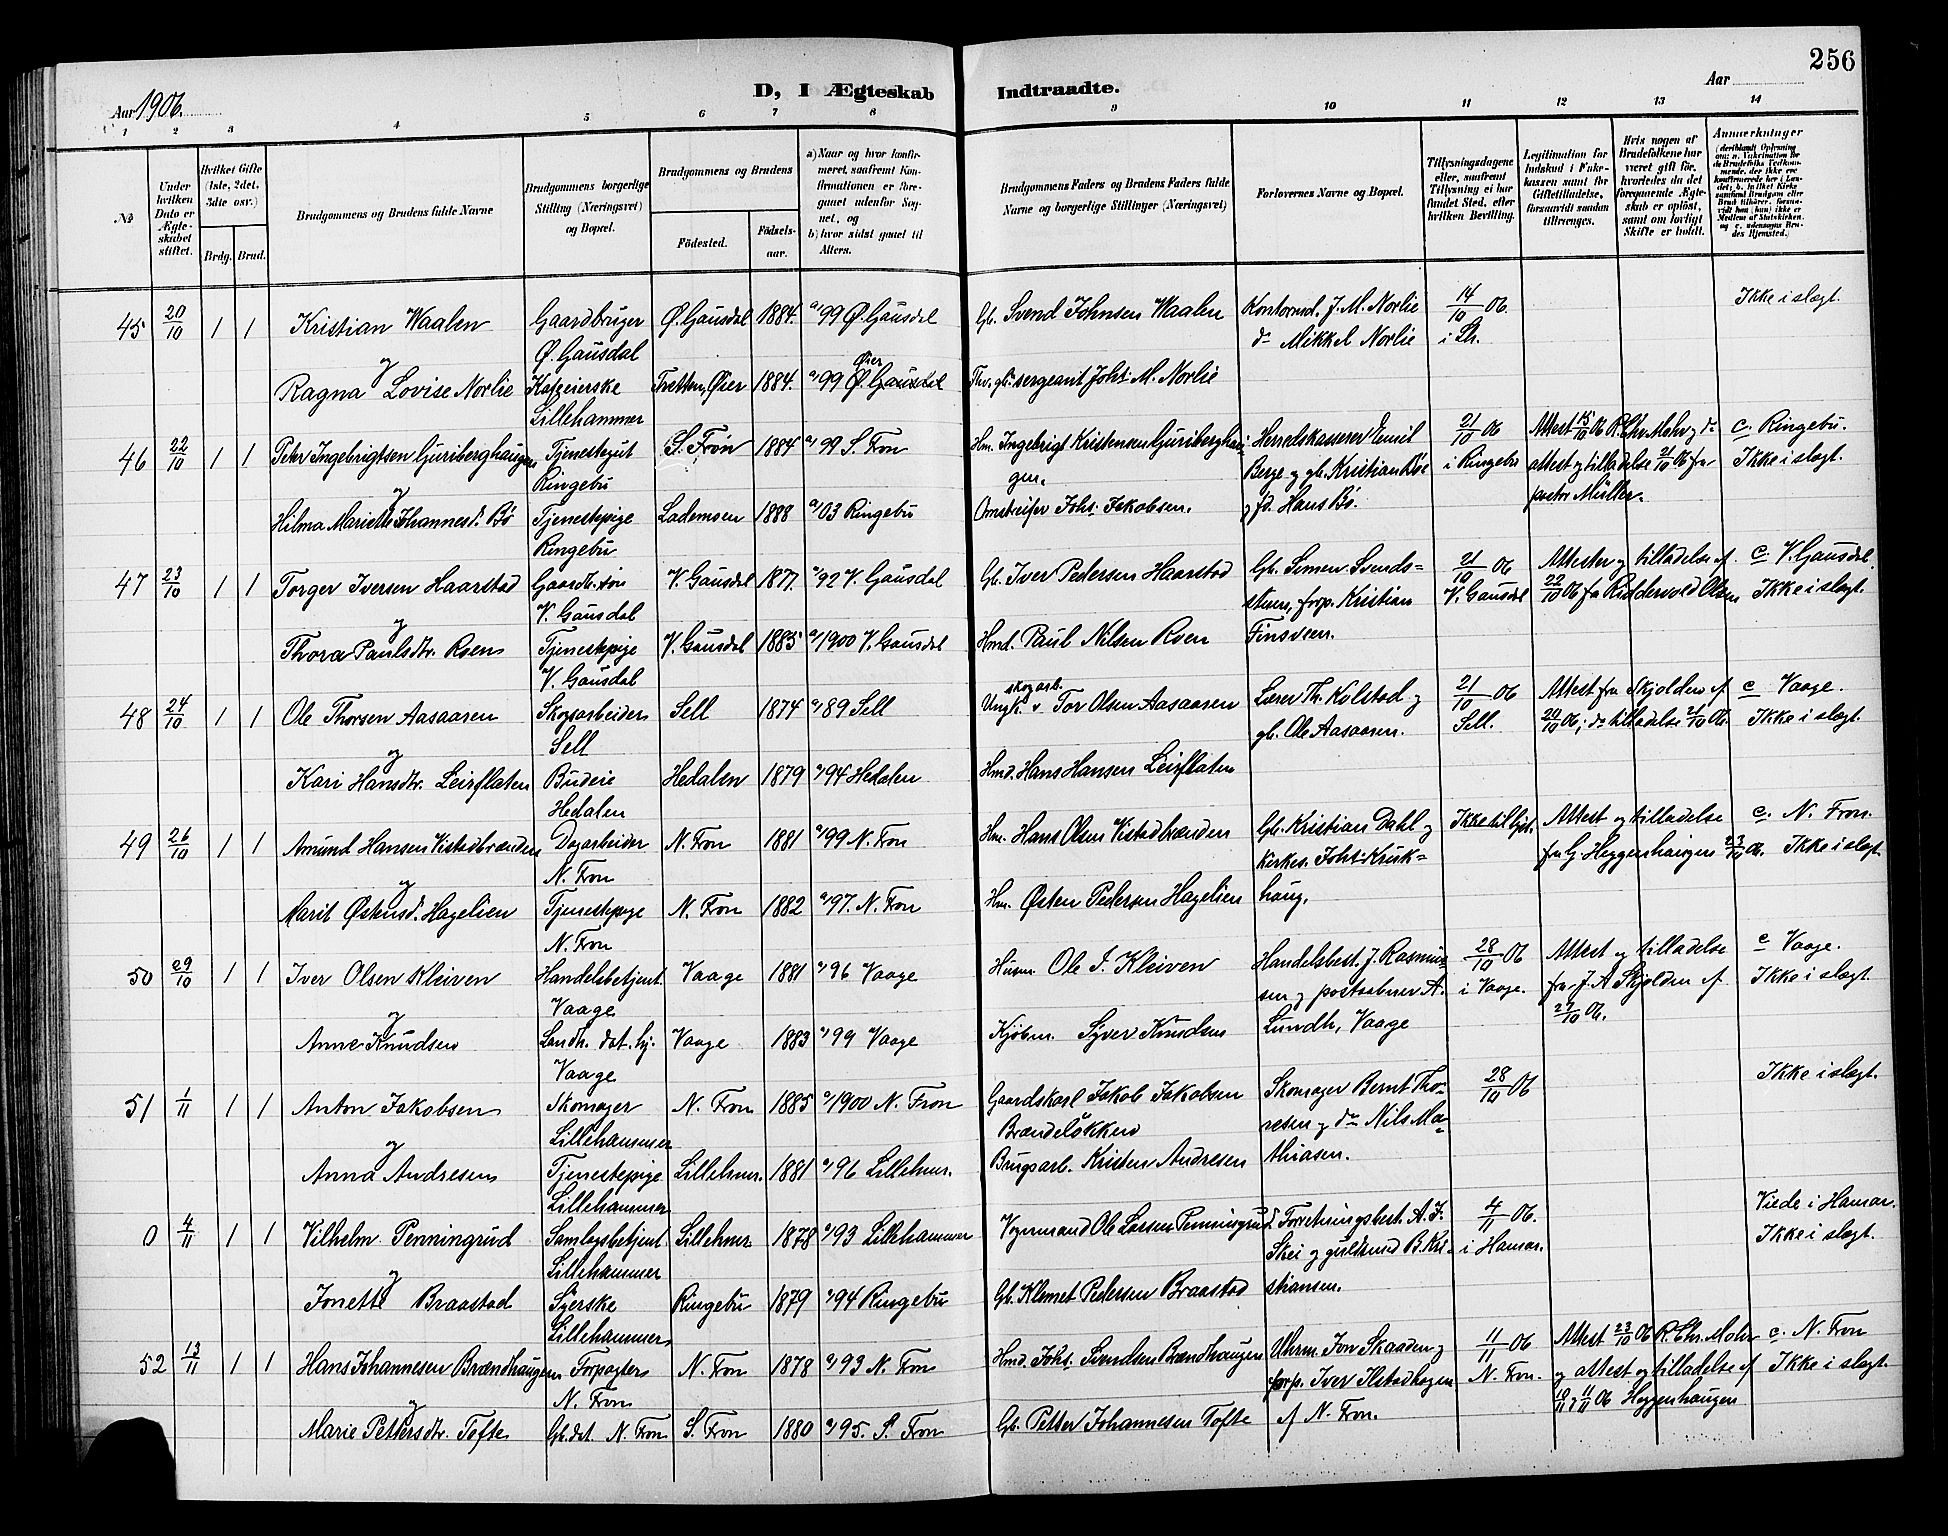 256
Aar 1906.
D, I Ægteskab Indtraadte.
Aar
1 2 3 4 5 6 7 8 9 10 11 12 13 14
№
Under hvilken Dato er Ægteskabet stiftet.
Hvilket Gifte (1ste, 2det, 3die osv.)
Brdg. Brud.
Brudgommens og Brudens fulde Navne
Brudgommens borgerlige Stilling (Næringsvei) og Bopæl.
Brudgommens og Brudens
Födested. Födsels-aar.
a) Naar og hvor konfirmeret, saafremt Konfirmationen er foregaaet udenfor Sognet, og
b) hvor sidst gaaet til Alters.
Brudgommens Faders og Brudens Faders fulde Navne og borgerlige Stillinger (Næringsvei)
Forlovernes Navne og Bopæl.
Tillysningsdagene eller, saafremt Tillysning ei har fundet Sted, efter hvilken Bevilling.
Legitimation for Indskud i Enkekassen samt for Giftetilladelse, forsaavidt saadan tiltrænges.
Hvis nogen af Brudefolkene har været gift før, hvorledes da det foregaaende Ægteskab er oplöst, samt om lovligt Skifte er holdt.
Anmærkninger
45 20/10 1 1 Kristian Waalen Gaardbruger Ø. Gausdal Ø. Gausdal 1884. a/ 99 Ø. Gausdal Gb. Svend Johnsen Waalen Kontormd. J. M. Norlie do Mikkel Norlie 14/10 06. i Lh. Ikke i slægt.
og
Ragna Lovise Norlie Kafeeierske Lillehammer Tretten, Øier 1884. a/ 99 Øier Fhv. gb. sergeant Johs. M. Norlie
46 22/10 1 1 Petr Ingebrigtsen Guriberghaugen Tjenestegut Ringebu S. Fron 1884 a/ 99 S. Fron Hm. Ingebrigt Kristensen Guriberghaugen. Herredskasserer Emil Berge og gb. Kristian Bøe og fd. Hans Bø. 21/10 06 i Ringebu Attest 15/10 06 R. Chr. Mohr og do attest og tilladelse 21/10 06 fra pastor Müller. c. Ringebu. Ikke i slægt.
og
Hilma Mariette Johannesd. Bø Tjenestepige Ringebu Lademoen 1888 a/ 03 Ringebu Omstreifer Johs. Jakobsen.
47 23/10 1 1 Torger Iversen Haarstad Gaardb. søn V. Gausdal V. Gausdal 1877. a/ 92 V. Gausdal Gb. Iver Pedersen Haarstad Gb. Simen Svendsstuen, forp. Kristian Finsveen. 21/10 06 V. Gausdal Attester og tilladelse af 22/10 06 fra Riddervold Olsen c. V. Gausdal. Ikke i slægt.
og
Thora Paulsdtr. Roen Tjenestepige V. Gausdal V. Gausdal 1885 a/ 1900 V. Gausdal Hmd. Paul Nilsen Roen
48 24/10 1 1 Ole Thorsen Aasaaren Skogarbeider Sell Sell 1874 a/ 89 Sell Ungk. skogarb. Tor Olsen Aasaaren Lærer Th. Kolstad og gb. Ole Aasaaren. 21/10 06 Sell. Attest fra Skjolden af 20/10 06; do tilladelse 21/10 06. c. Vaage. Ikke i slægt.
og
Kari Hansdtr. Leirflaten Budeie Hedalen Hedalen 1879 a/ 94 Hedalen Hmd. Hans Hansen Leirflaten
49 26/10 1 1 Amund Hansen Vistadbrænden Dagarbeider N. Fron N. Fron 1881 a/ 99 N. Fron Hm. Hans Olsen Vistadbrænden Gb. Kristian Dahl og kirkes. Johs. Kruk= haug. Ikke tillyst. Attest og tilladelse fra G. Heggenhaugen 23/10 06. c. N. Fron. Ikke i slægt.
og
Marit Østensd. Hagelien Tjenestepige N. Fron N. Fron 1882 a/ 97. N. Fron Hm. Østen Pedersen Hagelien
50 29/10 1 1 Iver Olsen Kleiven Handelsbetjent Vaage Vaage 1881 a/ 96 Vaage Husm. Ole I. Kleiven Handelsbest. J. Rasmussen og postaabner A. Lundh, Vaage 28/10 06 i Vaage. Attest og tilladelse fra J. A. Skjolden af 27/10 06. c Vaage. Ikke i slægt.
og
Anne Knudsen Landh. dat. hj. Vaage Vaage 1883 a/ 99 Vaage Kjøbm. Syver Knudsen
51 1/11 1 1 Anton Jakobsen Skomager Lillehammer N. Fron 1885 a/ 1900 N. Fron Gaardskarl Jakob Jakobsen Brændeløkken Skomager Bernt Thoresen og do Nils Mathiasen. 28/10 06 Ikke i slægt.
og
Anna Andresen Tjenestepige Lillehammer Lillehmr. 1881 a/ 96 Lillehmr. Brugsarb. Kristen Andresen
0 4/11 1 1 Vilhelm Penningrud Samlagsbetjent Lillehammer Lillehmr. 1878 a/ 93 Lillehammer Vognmand Ole Larsen Penningrud Forretningsbest. A. J. Skei og guldsmed B. Kristiansen. 4/11 06. i Hamar. Viede i Hamar. Ikke i slægt.
og
Jonette Braastad Syerske Lillehammer Ringebu 1879 a/ 94 Ringebu Gb. Klemet Pedersen Braastad
52 13/11 1 1 Hans Johannesen Brændhaugen Forpagter N. Fron N. Fron 1878 a/ 93 N. Fron Hmd. Johs. Svendsen Brændhaugen Uhrm. Jon Skaaden og forp. Iver Ilstadhagen af N. Fron. 11/11 06 N. Fron. Attest 23/10 06 R. Chr. Mohr og attest og tilladelse af 10/11 og 11/11 06 Heggenhaugen c. N. Fron Ikke i slægt.
og
Marie Pettersdtr. Tofte Gb. dat. N. Fron S. Fron 1880 a/ 95. S. Fron Gb. Petter Johannesen Tofte